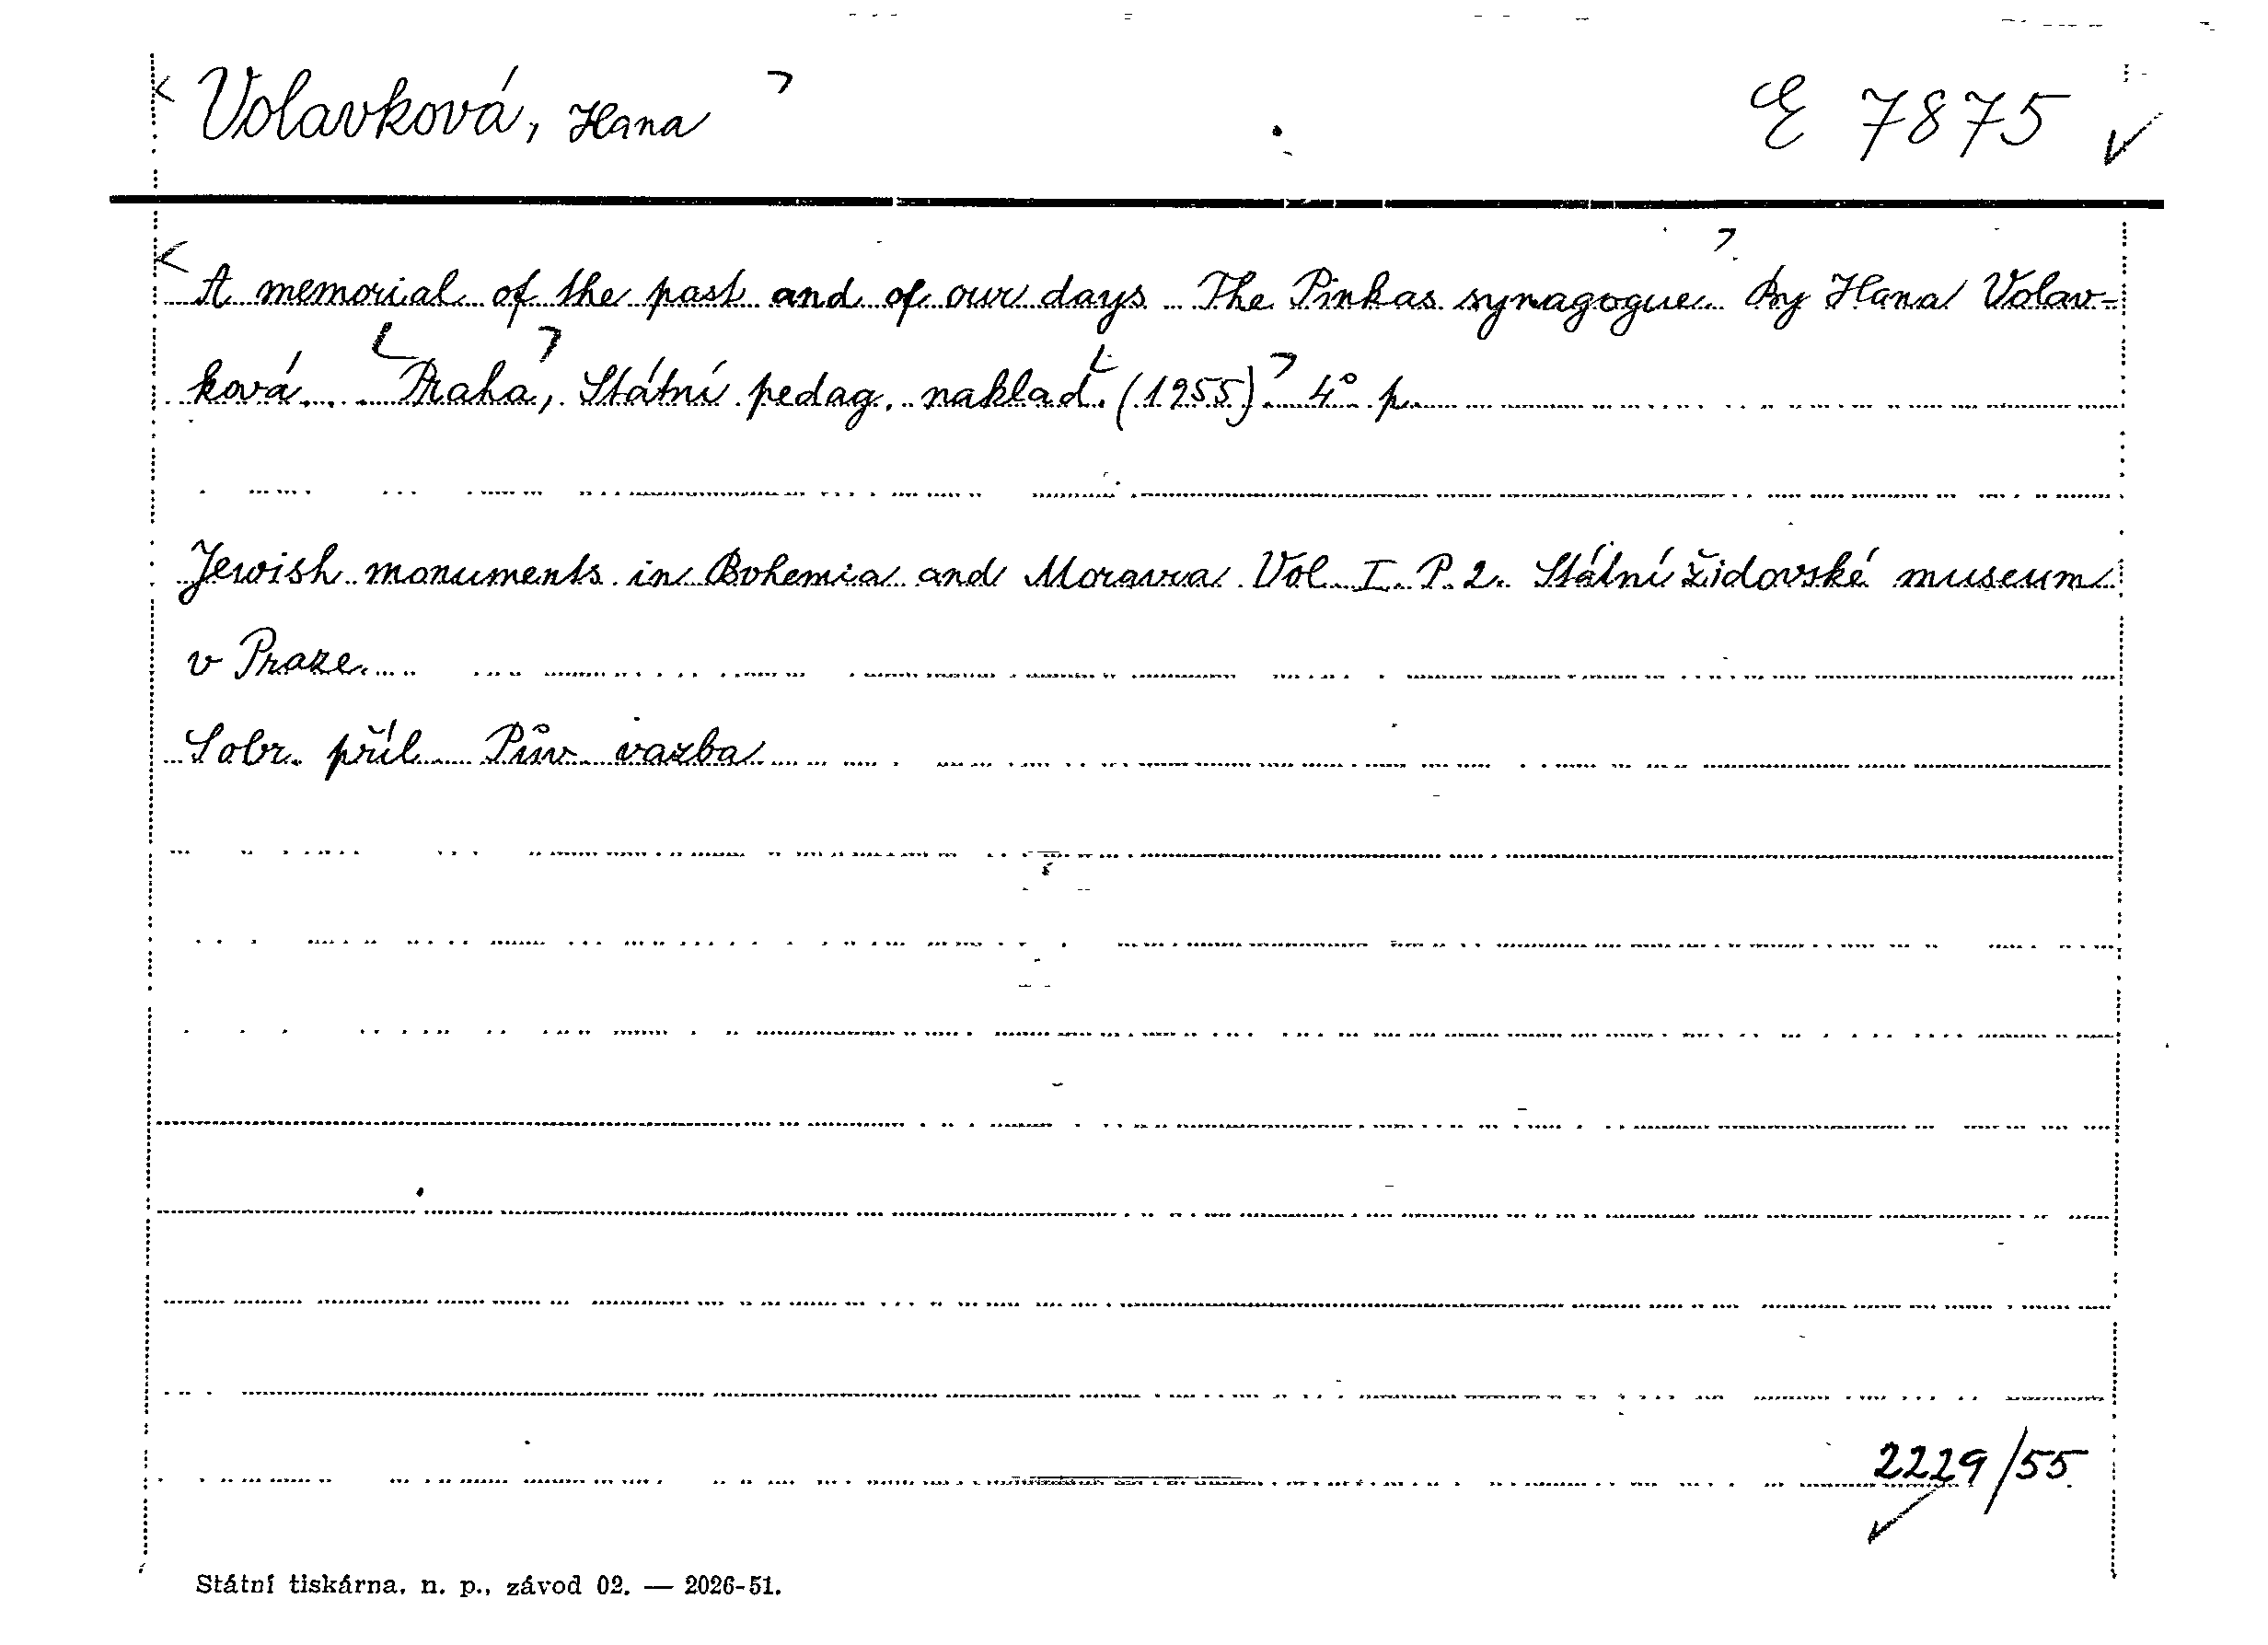 Volavková, Hana E 7875
A memorial of the past and of our days The Pinkas synagogue by Hana Volav-
ková. Praha, Státní pedag. naklad. (1955) 4° p.
Jewish monuments in Bohemia and Moravia Vol. I. P. 2. Státní židovské museum
v Praze.
Sobr. příl. Pův. vazba
2229/55
Státní tiskárna, n. p., závod 02. — 2026-51.